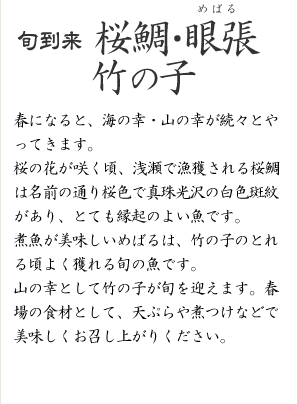 めばる
旬到来 桜鯛・眼張
竹の子
春になると、海の幸・山の幸が続々とや
ってきます。
桜の花が咲く頃、浅瀬で漁獲される桜鯛
は名前の通り桜色で真珠光沢の白色斑紋
があり、とても縁起のよい魚です。
煮魚が美味しいめばるは、竹の子のとれ
る頃よく獲れる旬の魚です。
山の幸として竹の子が旬を迎えます。春
場の食材として、天ぷらや煮つけなどで
美味しくお召し上がりください。